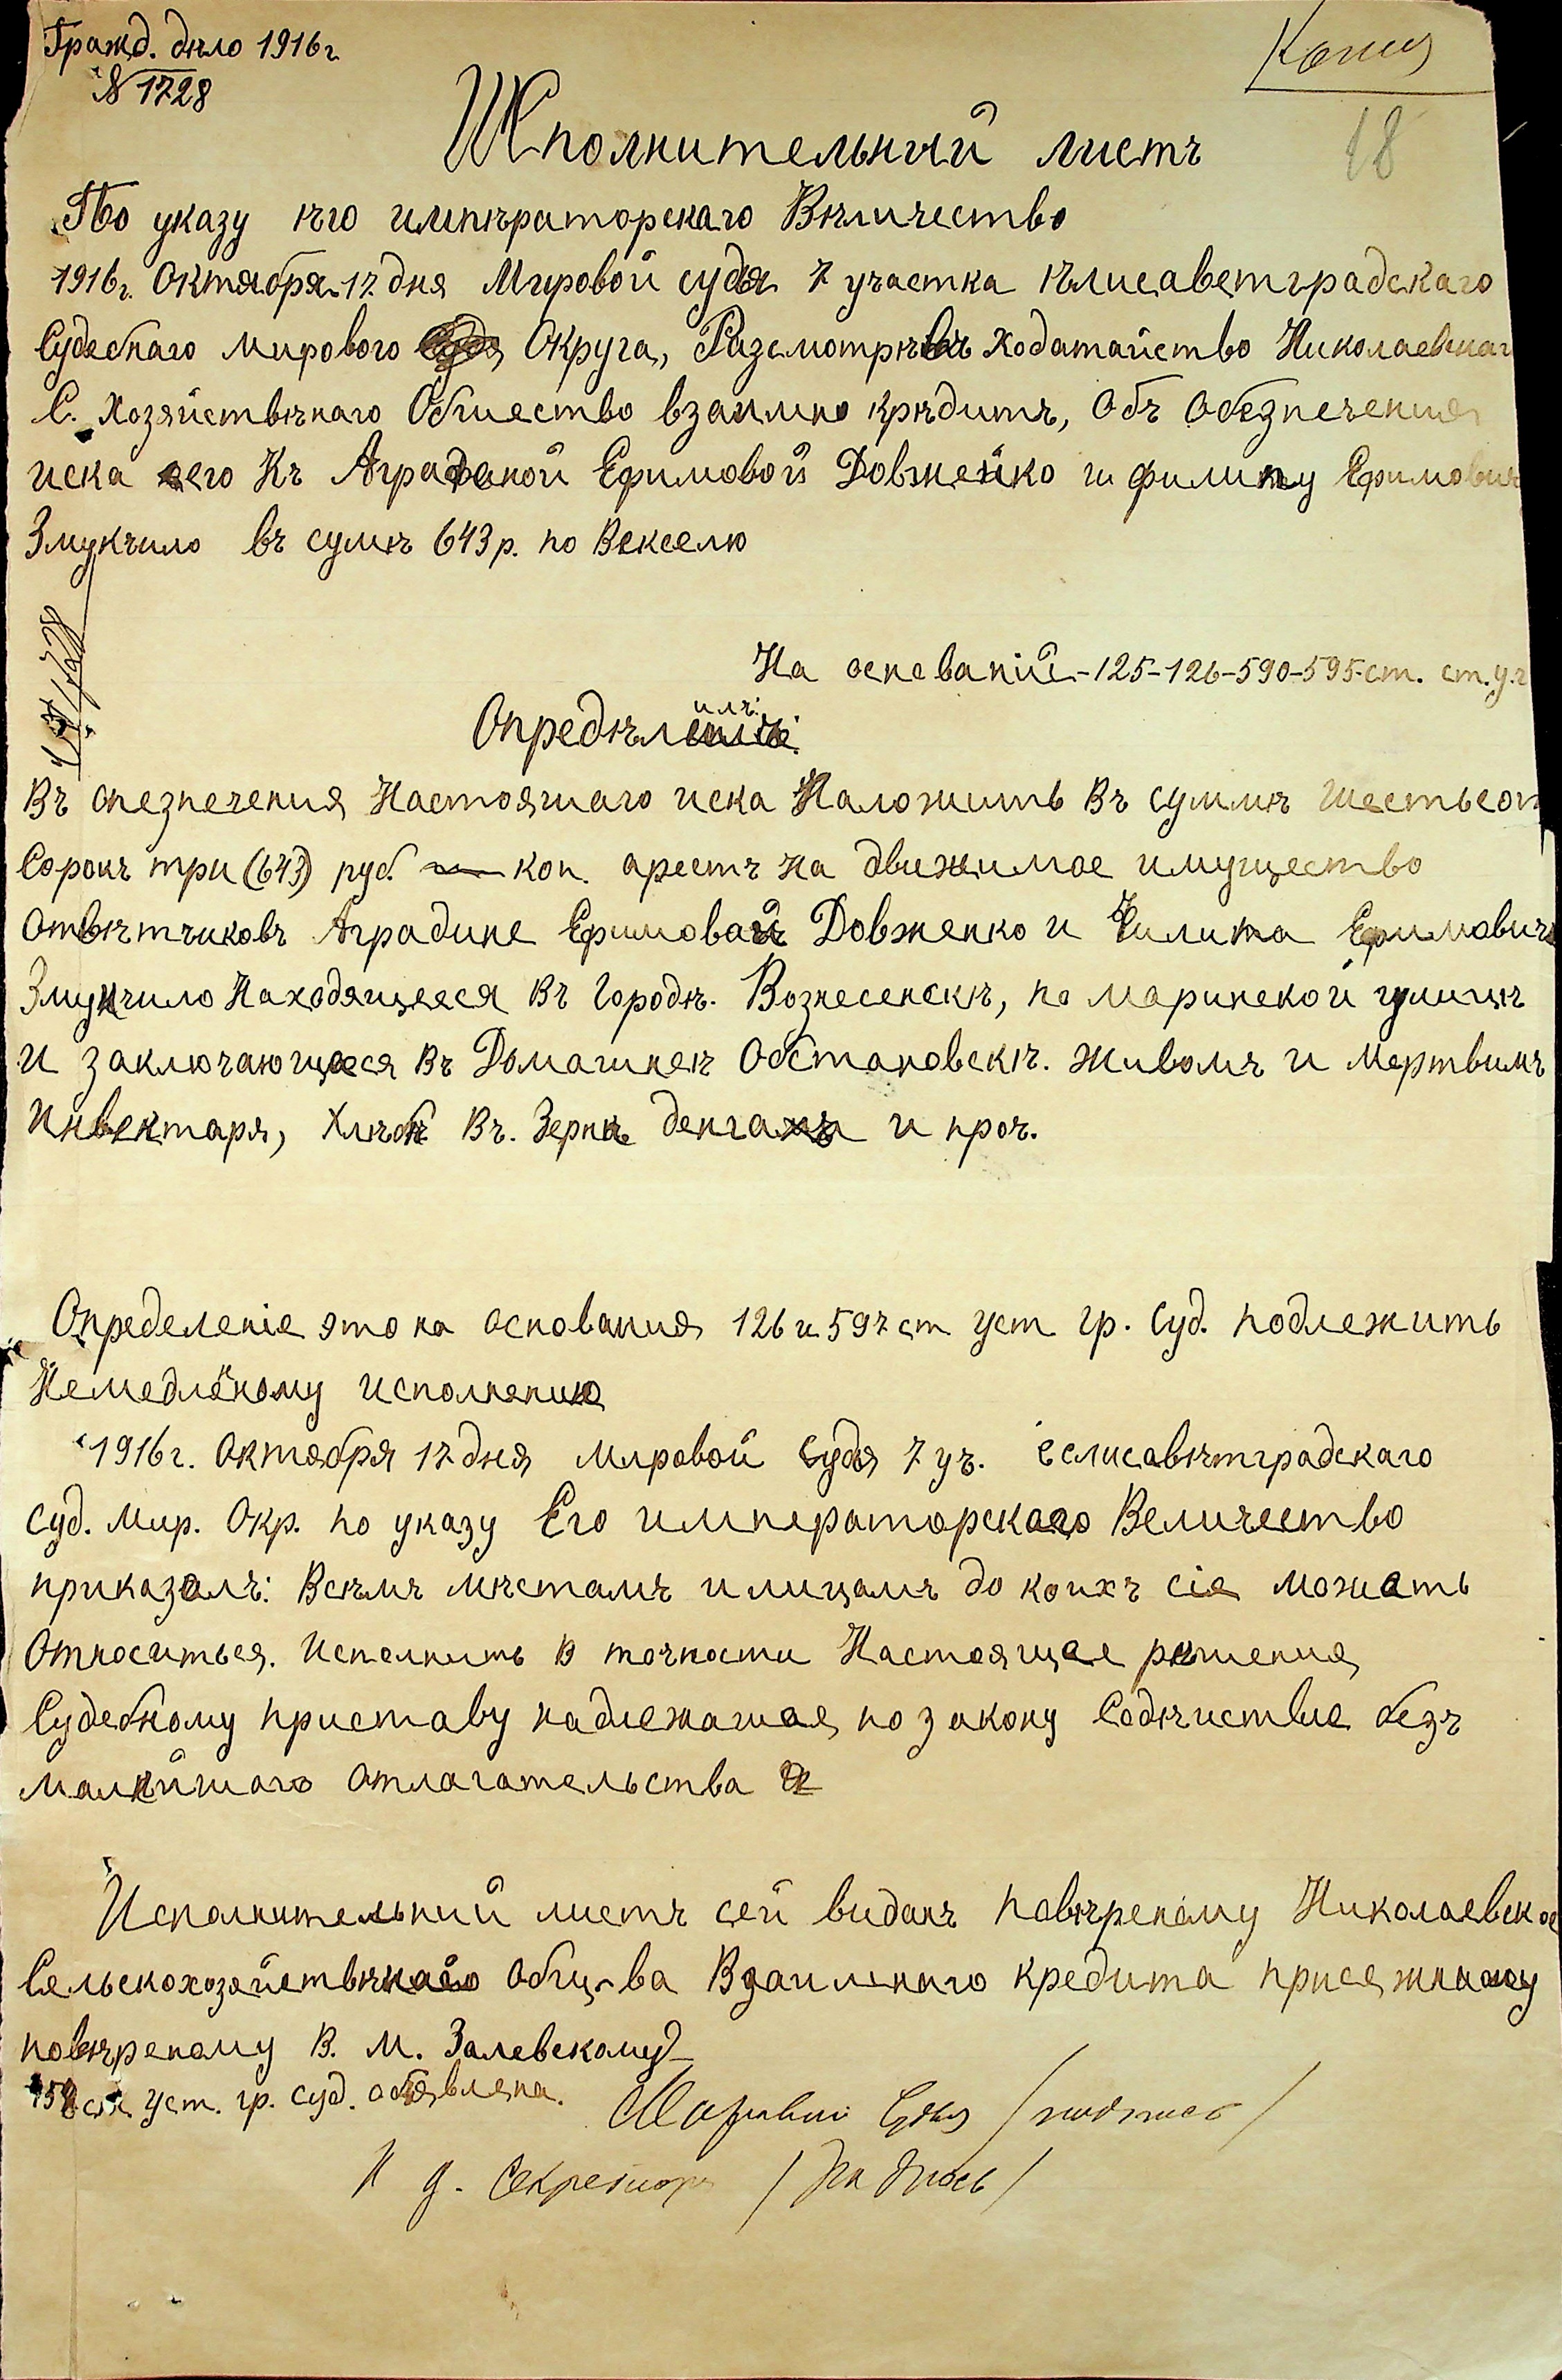 Гражд. дѣло 1916 г.
Копия
№ 1728
18
Исполнительний листъ
По указу ѣго импѣраторскаго Вѣличество
1916 г. Октября 17 дня Мировой судья 7 участка ѣлисаветградскаго
Судебнаго мирового Округа, Разсмотрѣвъ Ходатайство Николаевскаг
С. Хозяйствѣнаго Обшество взаимно крѣдитъ, Объ Обезпечения
иска его Къ Аграфеной Ефимовой Довженко и филипу Ефимович
Змунчило въ сумѣ 643 р. по Векселю
На основаній - 125-126-590-595 ст. ст. у. г
Опредѣлилъ:
Въ опезпечения Настояшаго иска Наложить Въ суммѣ шестьсот
Сорокъ три (643) руб. — коп. арестъ на движимое имущество
Отвѣтчиковъ Аградине Ефимовай Довженко и Филипа Ефимовича
Змунчило Находящееся Въ Городѣ. Вознесенскѣ, по маринской улицѣ
и заключающееся Въ Домашнеѣ Обстановскѣ. живомъ и мертвимъ
Инвентаря, Хлѣбѣ Въ. Зернѣ денгахъ и проч.
Определеніе это на основания 126 и 597 ст уст гр. Суд. подлежить
Немедлѣному исполнению
1916 г. Октября 17 дня мировой Судья 7 уч. елисавѣтградскаго
Суд. мир. Окр. по указу Его императорскаго Величество
приказалъ: Всѣмъ мѣстамъ и лицамъ до коихъ сіе можеть
Относиться. Исполнить в точности Настоящее рѣшения
Судебному приставу надлежашая по закону Содѣйствие безъ
малѣйшаго отлагательства
Исполнительний листъ сей виданъ повѣреному Николаевское
Сельскохозяйствѣнаго общ-ва Взаимнаго кредита присяжному
повѣреному В. М. Залевскому
ст. Уст. гр. суд. обявлена.
Мировий Судья / подпись /
И д. Секретаря / подпись /